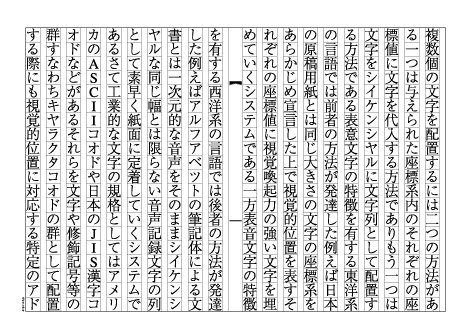 複数個の文字を配置するには二つの方法があ
る一つは与えられた座標系内のそれぞれの座
標値に文字を代入する方法でありもう一つは
文字をシイケンシヤルに文字列として配置す
る方法である表意文字の特徴を有する東洋系
の言語では前者の方法が発達した例えば日本
の原稿用紙とは同じ大きさの文字の座標系を
あらかじめ宣言した上で視覚的位置を表すそ
れぞれの座標値に視覚喚起力の強い文字を埋
めていくシステムである一方表音文字の特徴
を有する西洋系の言語では後者の方法が発達
した例えばアルフアベツトの筆記体による文
書とは一次元的な音声をそのままシイケンシ
ヤルな同じ幅とは限らない音声記録文字の列
として素早く紙面に定着していくシステムで
あるさて工業的な文字の規格としてはアメリ
カのASCIIコオドや日本のJIS漢字コ
オドなどがあるそれらを文字や修飾記号等の
群すなわちキヤラクタコオドの群として配置
する際にも視覚的位置に対応する特定のアド